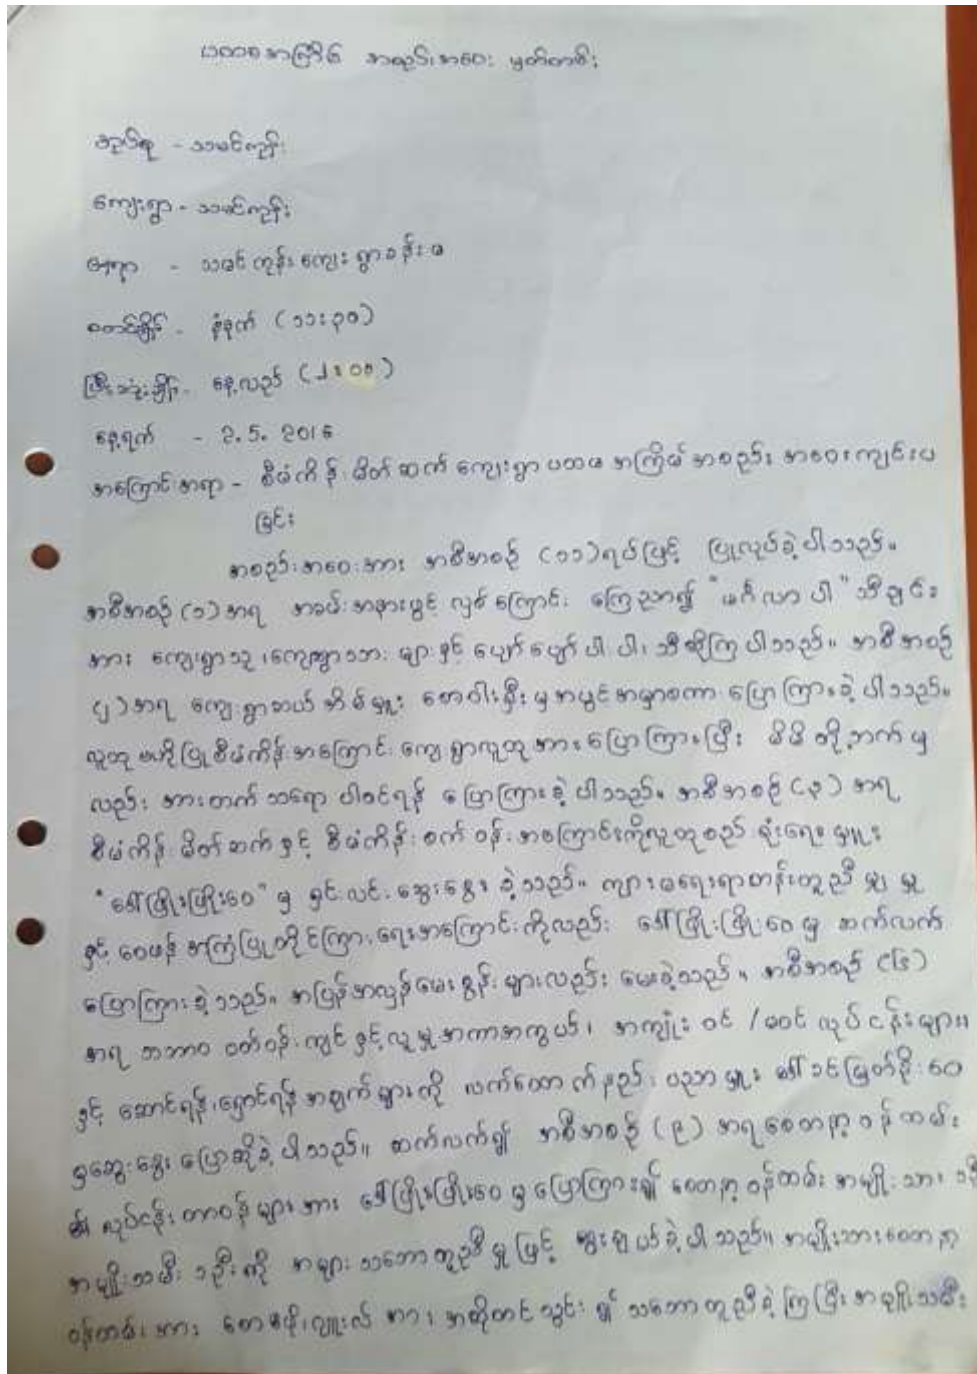 ပထမအကြိမ် အစည်းအဝေး မှတ်တမ်း
အုပ်စု - သမင်ကုန်း
ကျေးရွာ - သမင်ကုန်း
နေရာ - သမင်ကုန်းကျေးရွာခန်းမ
စတင်ချိန် - နံနက် (၁၁း၃၀)
ပြီးဆုံးချိန် - နေ့လည် (၂း၀၀)
နေ့ရက် - 2.5.2016
အကြောင်းအရာ - စီမံကိန်းမိတ်ဆက် ကျေးရွာပထမအကြိမ်အစည်းအဝေးကျင်းပ
ခြင်း
အစည်းအဝေးအား အစီအစဉ် (၁၁)ရပ်ဖြင့် ပြုလုပ်ခဲ့ပါသည်။
အစီအစဉ် (၁) အရ အခမ်းအနားဖွင့်လှစ်ကြောင်း ကြေညာ၍ "မင်္ဂလာပါ" သီချင်း
အား ကျေးရွာသူ၊ကျေးရွာသား များနှင့် ပျော်ပျော်ပါးပါး သီဆိုကြပါသည်။ အစီအစဉ်
(၂) အရ ကျေးရွာဆယ်အိမ်မှူး မှအဖွင့်အမှာစကား ပြောကြားခဲ့ပါသည်။
လူထုဗဟိုပြုစီမံကိန်းအကြောင်း ကျေးရွာလူထုအား ပြောကြားပြီး မိမိတို့ဘက်မှ
လည်း အားတက်သရော ပါဝင်ရန် ပြောကြားခဲ့ပါသည်။ အစီအစဉ် (၃) အရ
စီမံကိန်းမိတ်ဆက်နှင့် စီမံကိန်းစက်ဝန်းအကြောင်းကိုလူထုစည်းရုံးရေးမှူး
"ဒေါ်ဖြိုးဖြိုးဝေ" မှ ရှင်းလင်းဆွေးနွေးခဲ့သည်။ ကျား/မရေးရာတန်းတူညီမျှမှု
နှင့် ဝေဖန်အကြံပြုတိုင်ကြားရေးအကြောင်းကိုလည်း ဒေါ်ဖြိုးဖြိုးဝေမှ ဆက်လက်
ပြောကြားခဲ့သည်။ အပြန်အလှန်မေးခွန်းများလည်း မေးခဲ့သည်။ အစီအစဉ်
အရ သဘာဝ ဝတ်ဝန်းကျင်နှင့်လူမှုအကာအကွယ်၊ အကျုံးဝင်/မဝင် လုပ်ငန်းများ
နှင့် ဆောင်ရန်၊ရှောင်ရန် အချက်များကို လက်ထောက်နည်းပညာမှူး ဒေါ်ခင်မြတ်နိုးဝေ
မှဆွေးနွေးပြောဆိုခဲ့ပါသည်။ ဆက်လက်၍ အစီအစဉ် (၉) အရစေတနာ့ဝန်ထမ်း
၏ လုပ်ငန်းတာဝန်များအား ဒေါ်ဖြိုးဖြိုးဝေမှပြောကြား၍ စေတနာ့ဝန်ထမ်း အမျိုးသား ၁ဦး
အမျိုးသမီး ၁ဦးကို အများသဘောတူညီမှုဖြင့် ရွေးချယ်ခဲ့ပါသည်။ အမျိုးသားစေတနာ့
ဝန်ထမ်းအား အား အဆိုတင်သွင်း၍ သဘောတူညီခဲ့ကြပြီး အမျိုးသမီး